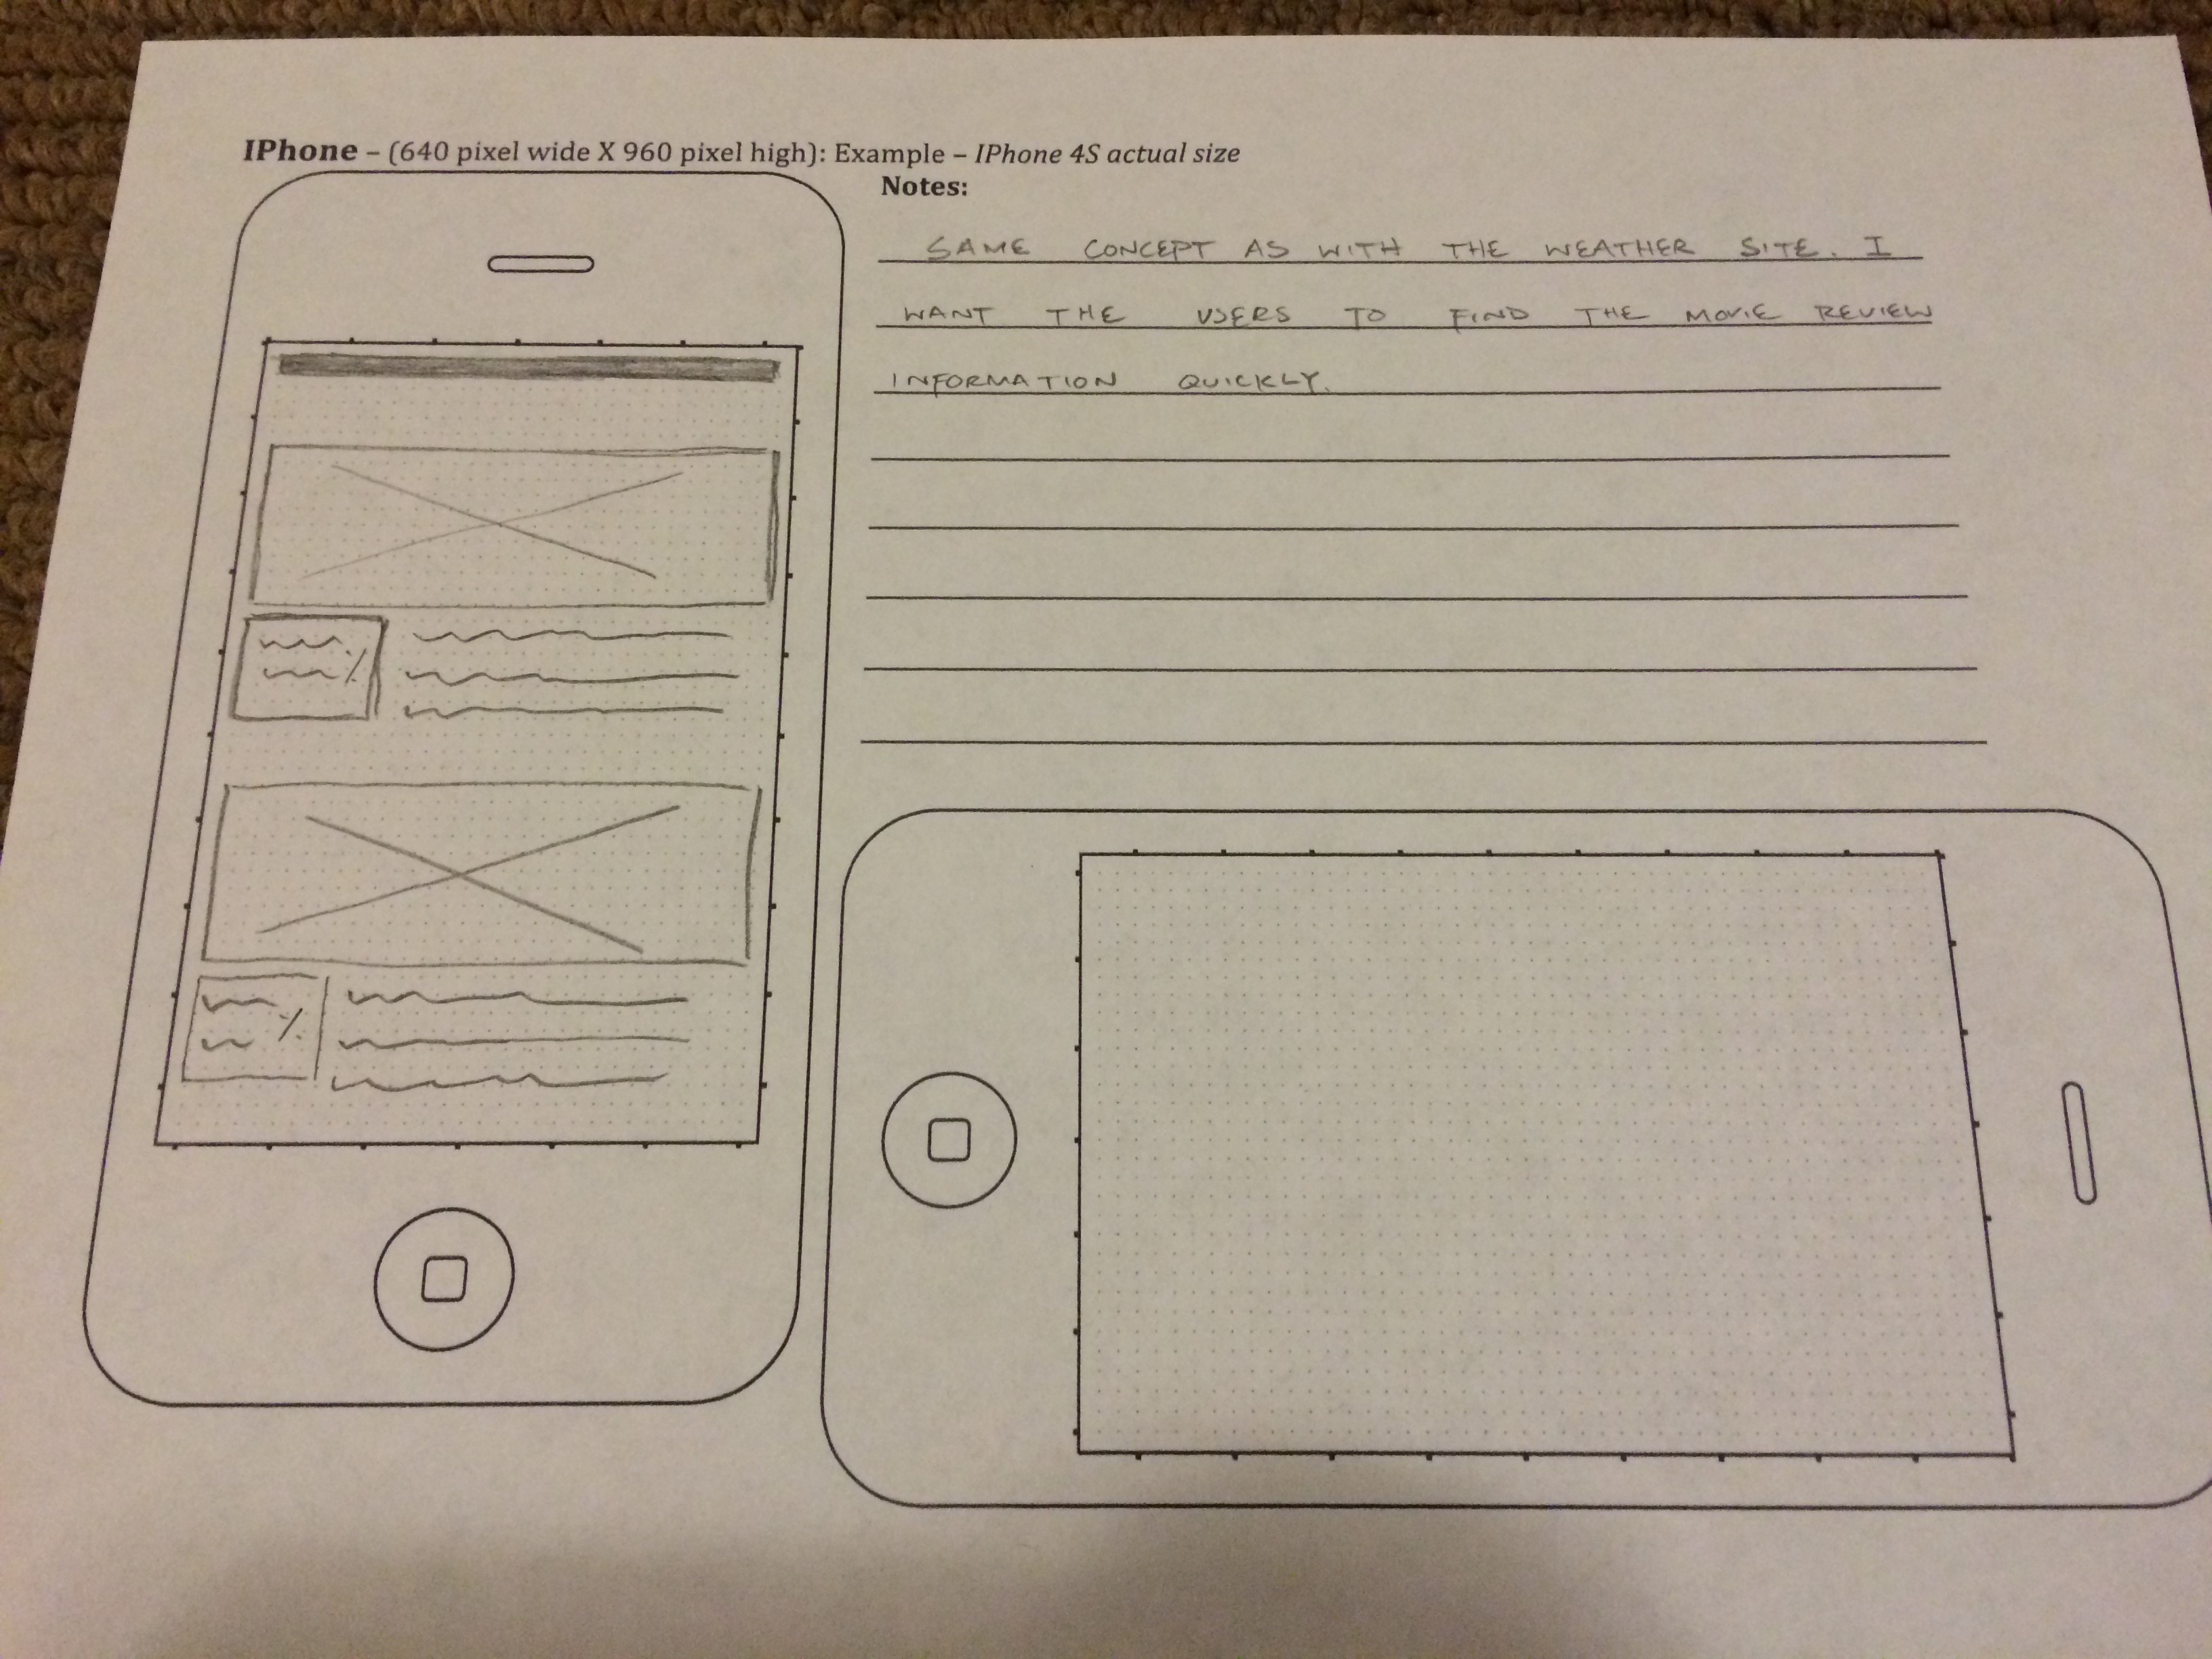 IPhone – (640 pixel wide X 960 pixel high): Example – IPhone 4S actual size
Notes:
SAME CONCEPT AS WITH THE WEATHER SITE. I
WANT THE USERS TO FIND THE MOVIE REVIEW
INFORMATION QUICKLY.
%
%